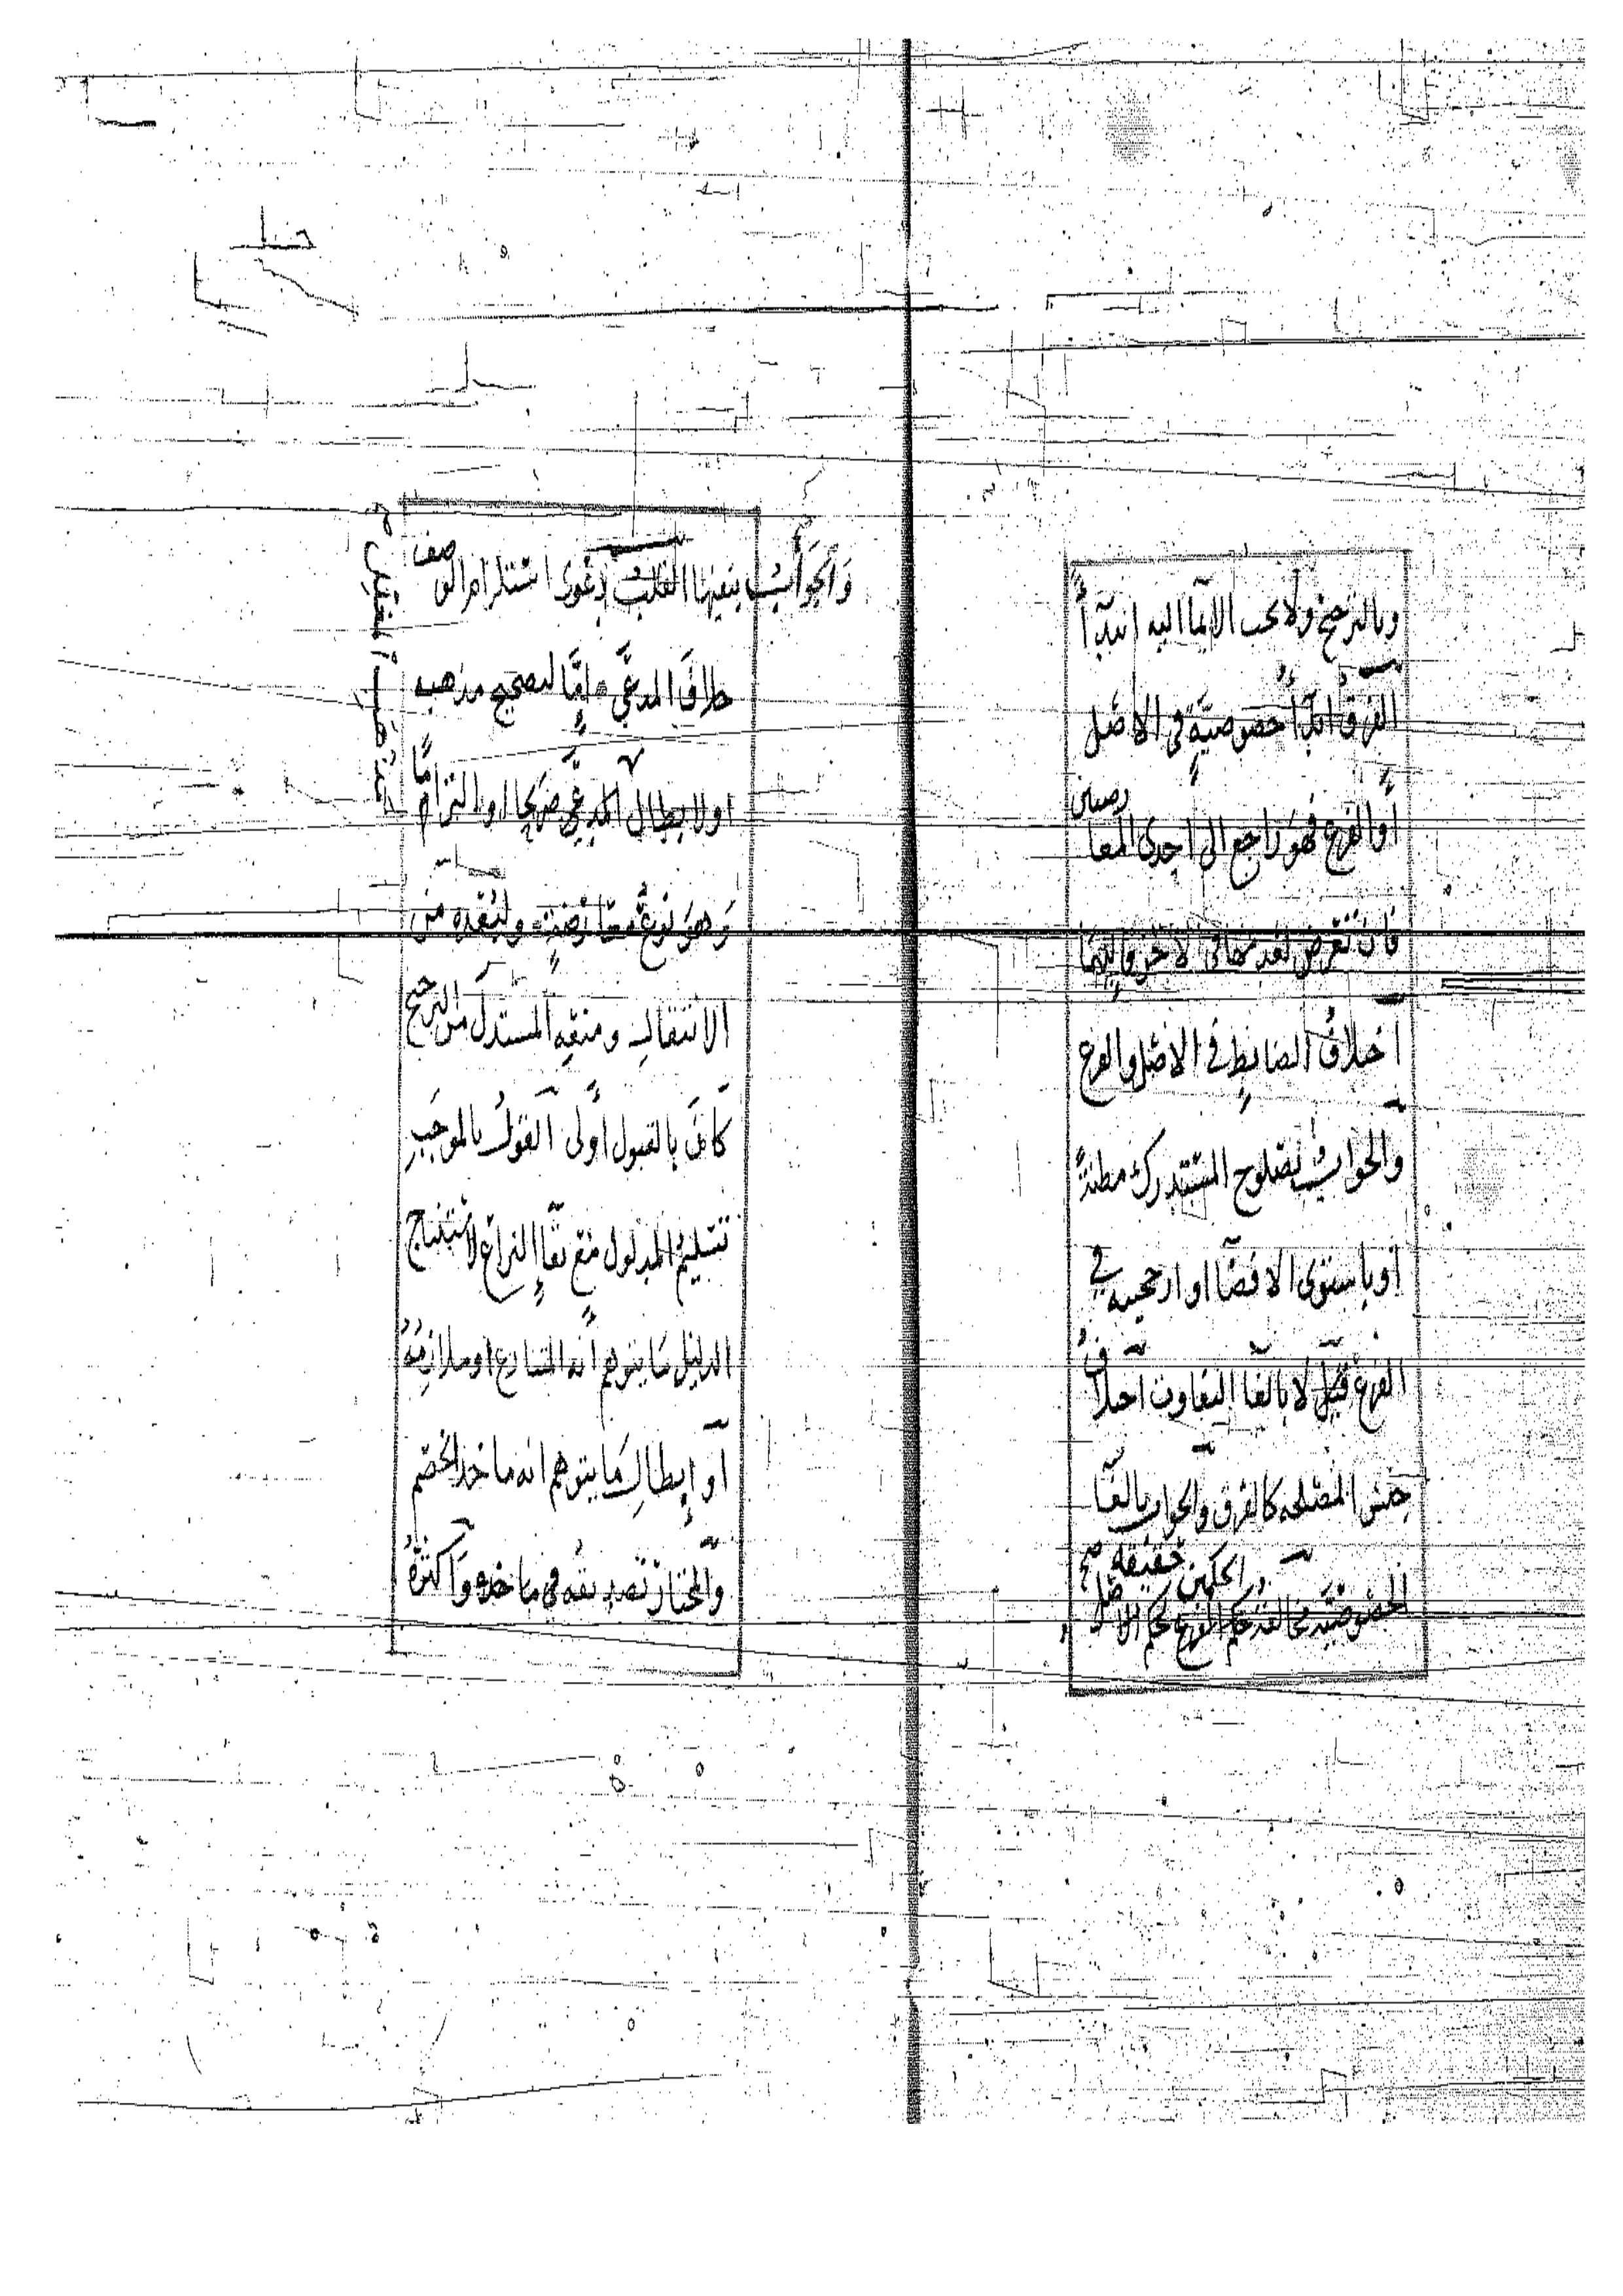 وبالترجيح ولا يجب الايمآ اليه ابتدآءً
الفرق ابدآءُ خصوصيَّةٍ فى الاصل
أو الفرع فهو راجع الى احدى المعارضتين
فان تعرض لعدمها فى الآخر فاليهما
اختلاف الضابط في الاصل والفرع
والجواب بصلوح المشترك مظنةً
او باستوى الافضآ او ارجحيته في
الفرع قيل لا بالغآ التفاوت اختلاف
جنس المصلحة كالفرق والجواب بالغآ
الخصوصيّة مخالفة حكم الفرع لحكم الاصل
والحكمين حقيقة صح
والجواب ببقيتها القلب دعوى استلزام الوصف
خلاف المدعى إمّا لتصحيح مذهبه
او لابطال المدعى صريحا او التزامًا
وَهو نوع معارضةٍ ولبُعده من
الانتقال ومنعه المستدل من الترجيح
كان بالقبول أولى القول بالموجَبِ
تسليم المدلول مع بقآءِ النزاع لاستنتاج
الدليل ما يتوهم أنه المتنازع او ملازمُهُ
أو إبطالِ ما يتوهم انه ماخذ الخصم
والمختار تصديقه في ماخذه وَأكثرُهُ